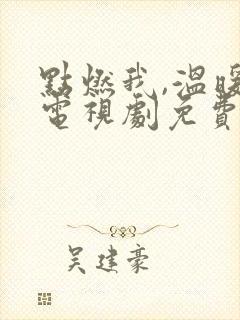 點燃我,溫暖
電視劇免費
吴建豪